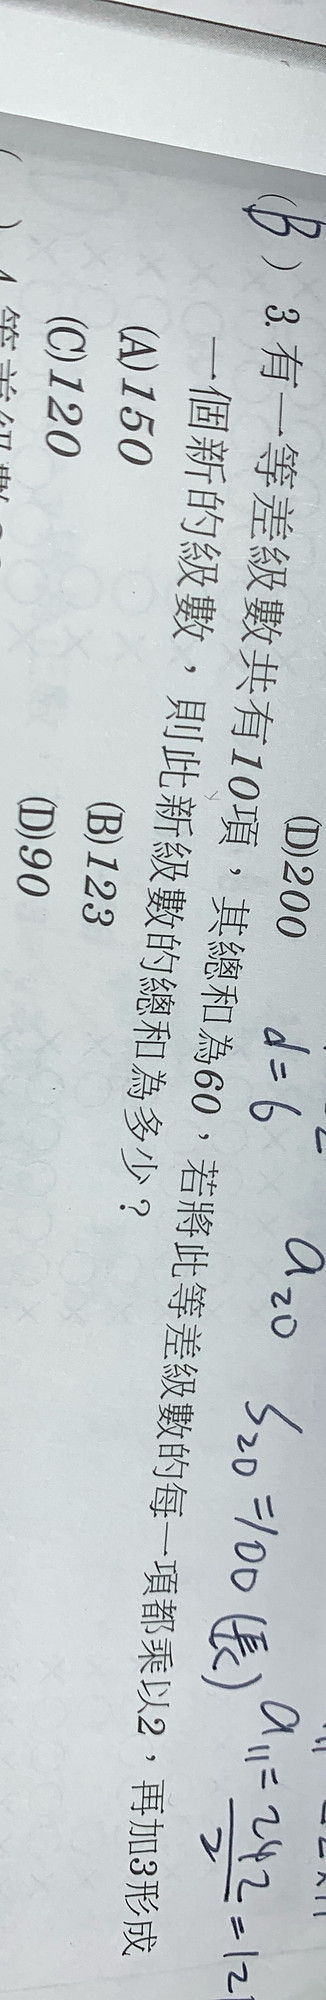 (D)200
d=6
a20
S20=100(長)
a11=242/2=121
(B) 3.有一等差級數共有10項，其總和為60，若將此等差級數的每一項都乘以2，再加3形成
一個新的級數，則此新級數的總和為多少？
(A)150 (B)123
(C)120 (D)90
( ) 4.等差級數